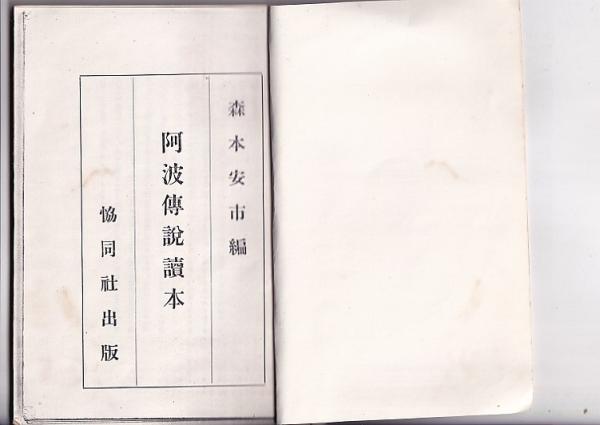 森本安市編
阿波傳說讀本
恊同社出版